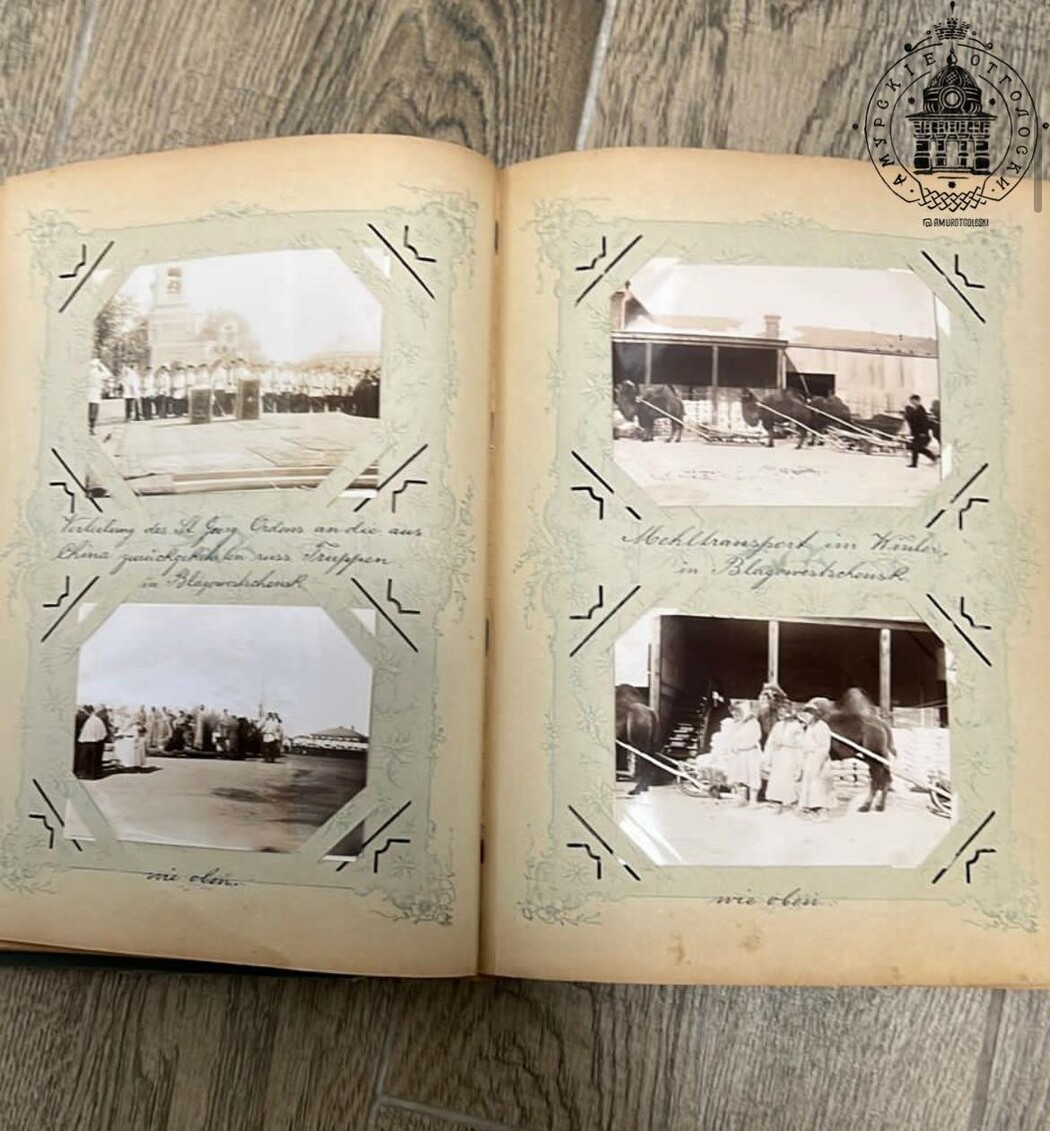 АМУРСКІЕ ОТГОЛОСКИ
@AMUROTGOLOSKI
Verleitung des St Georg Ordens an die aus
China zurückgekehrten russ Truppen
in Blagowestschensk
wie oben.
Mehltransport im Winter,
in Blagowestschensk
wie oben